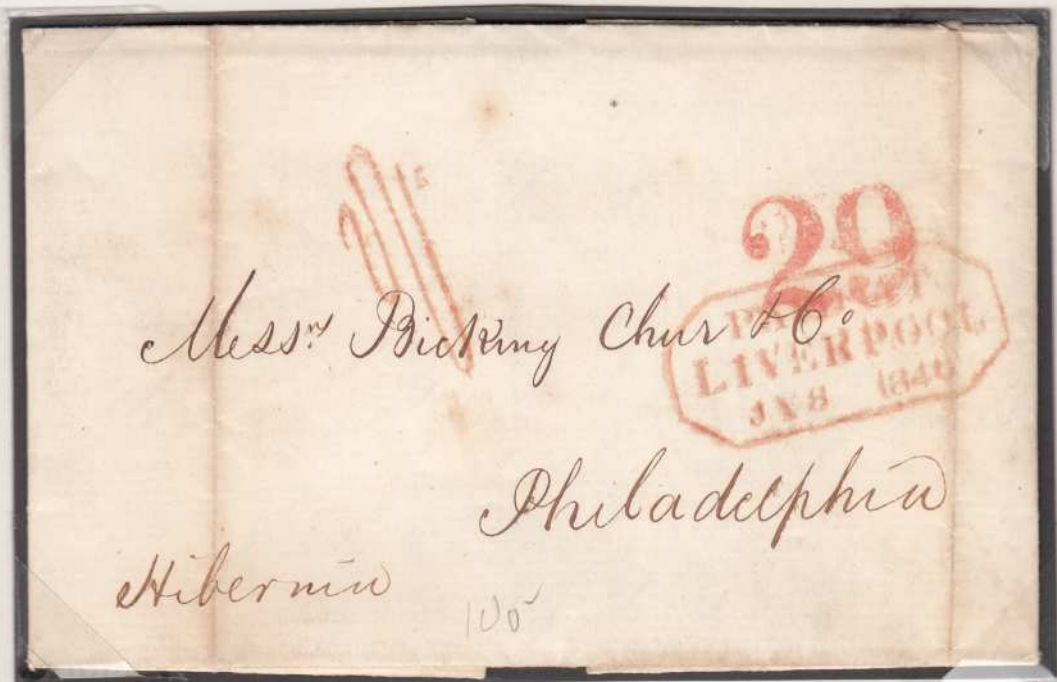 20
PAID AT
LIVERPOOL
JY 8 1846
Messrs Bicking Chur & Co
Philadelphia
Hibernia